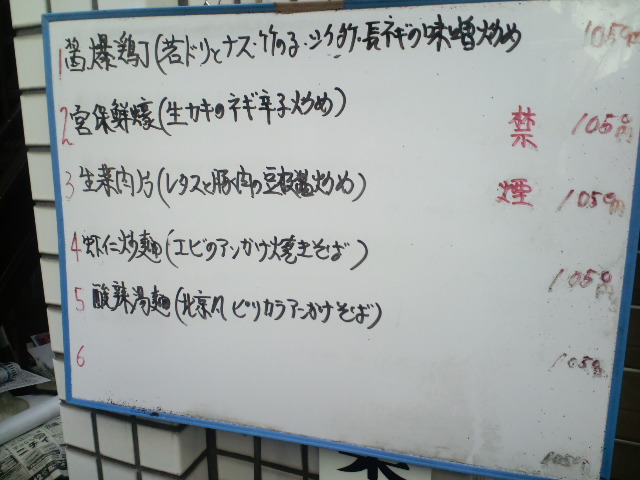 1 醤爆鶏丁(若ドリとナス・竹の子・シイタケ・長ネギの味噌炒め 1050円
2 宮保鮮蠔(生カキのネギ辛子炒め) 1050円
3 生菜肉片(レタスと豚肉の豆板醤炒め) 1050円
4 虾仁炒麺(エビのアンかけ焼きそば) 1050円
5 酸辣湯麺(北京風ピリカラアンかけそば) 1050
6
禁煙